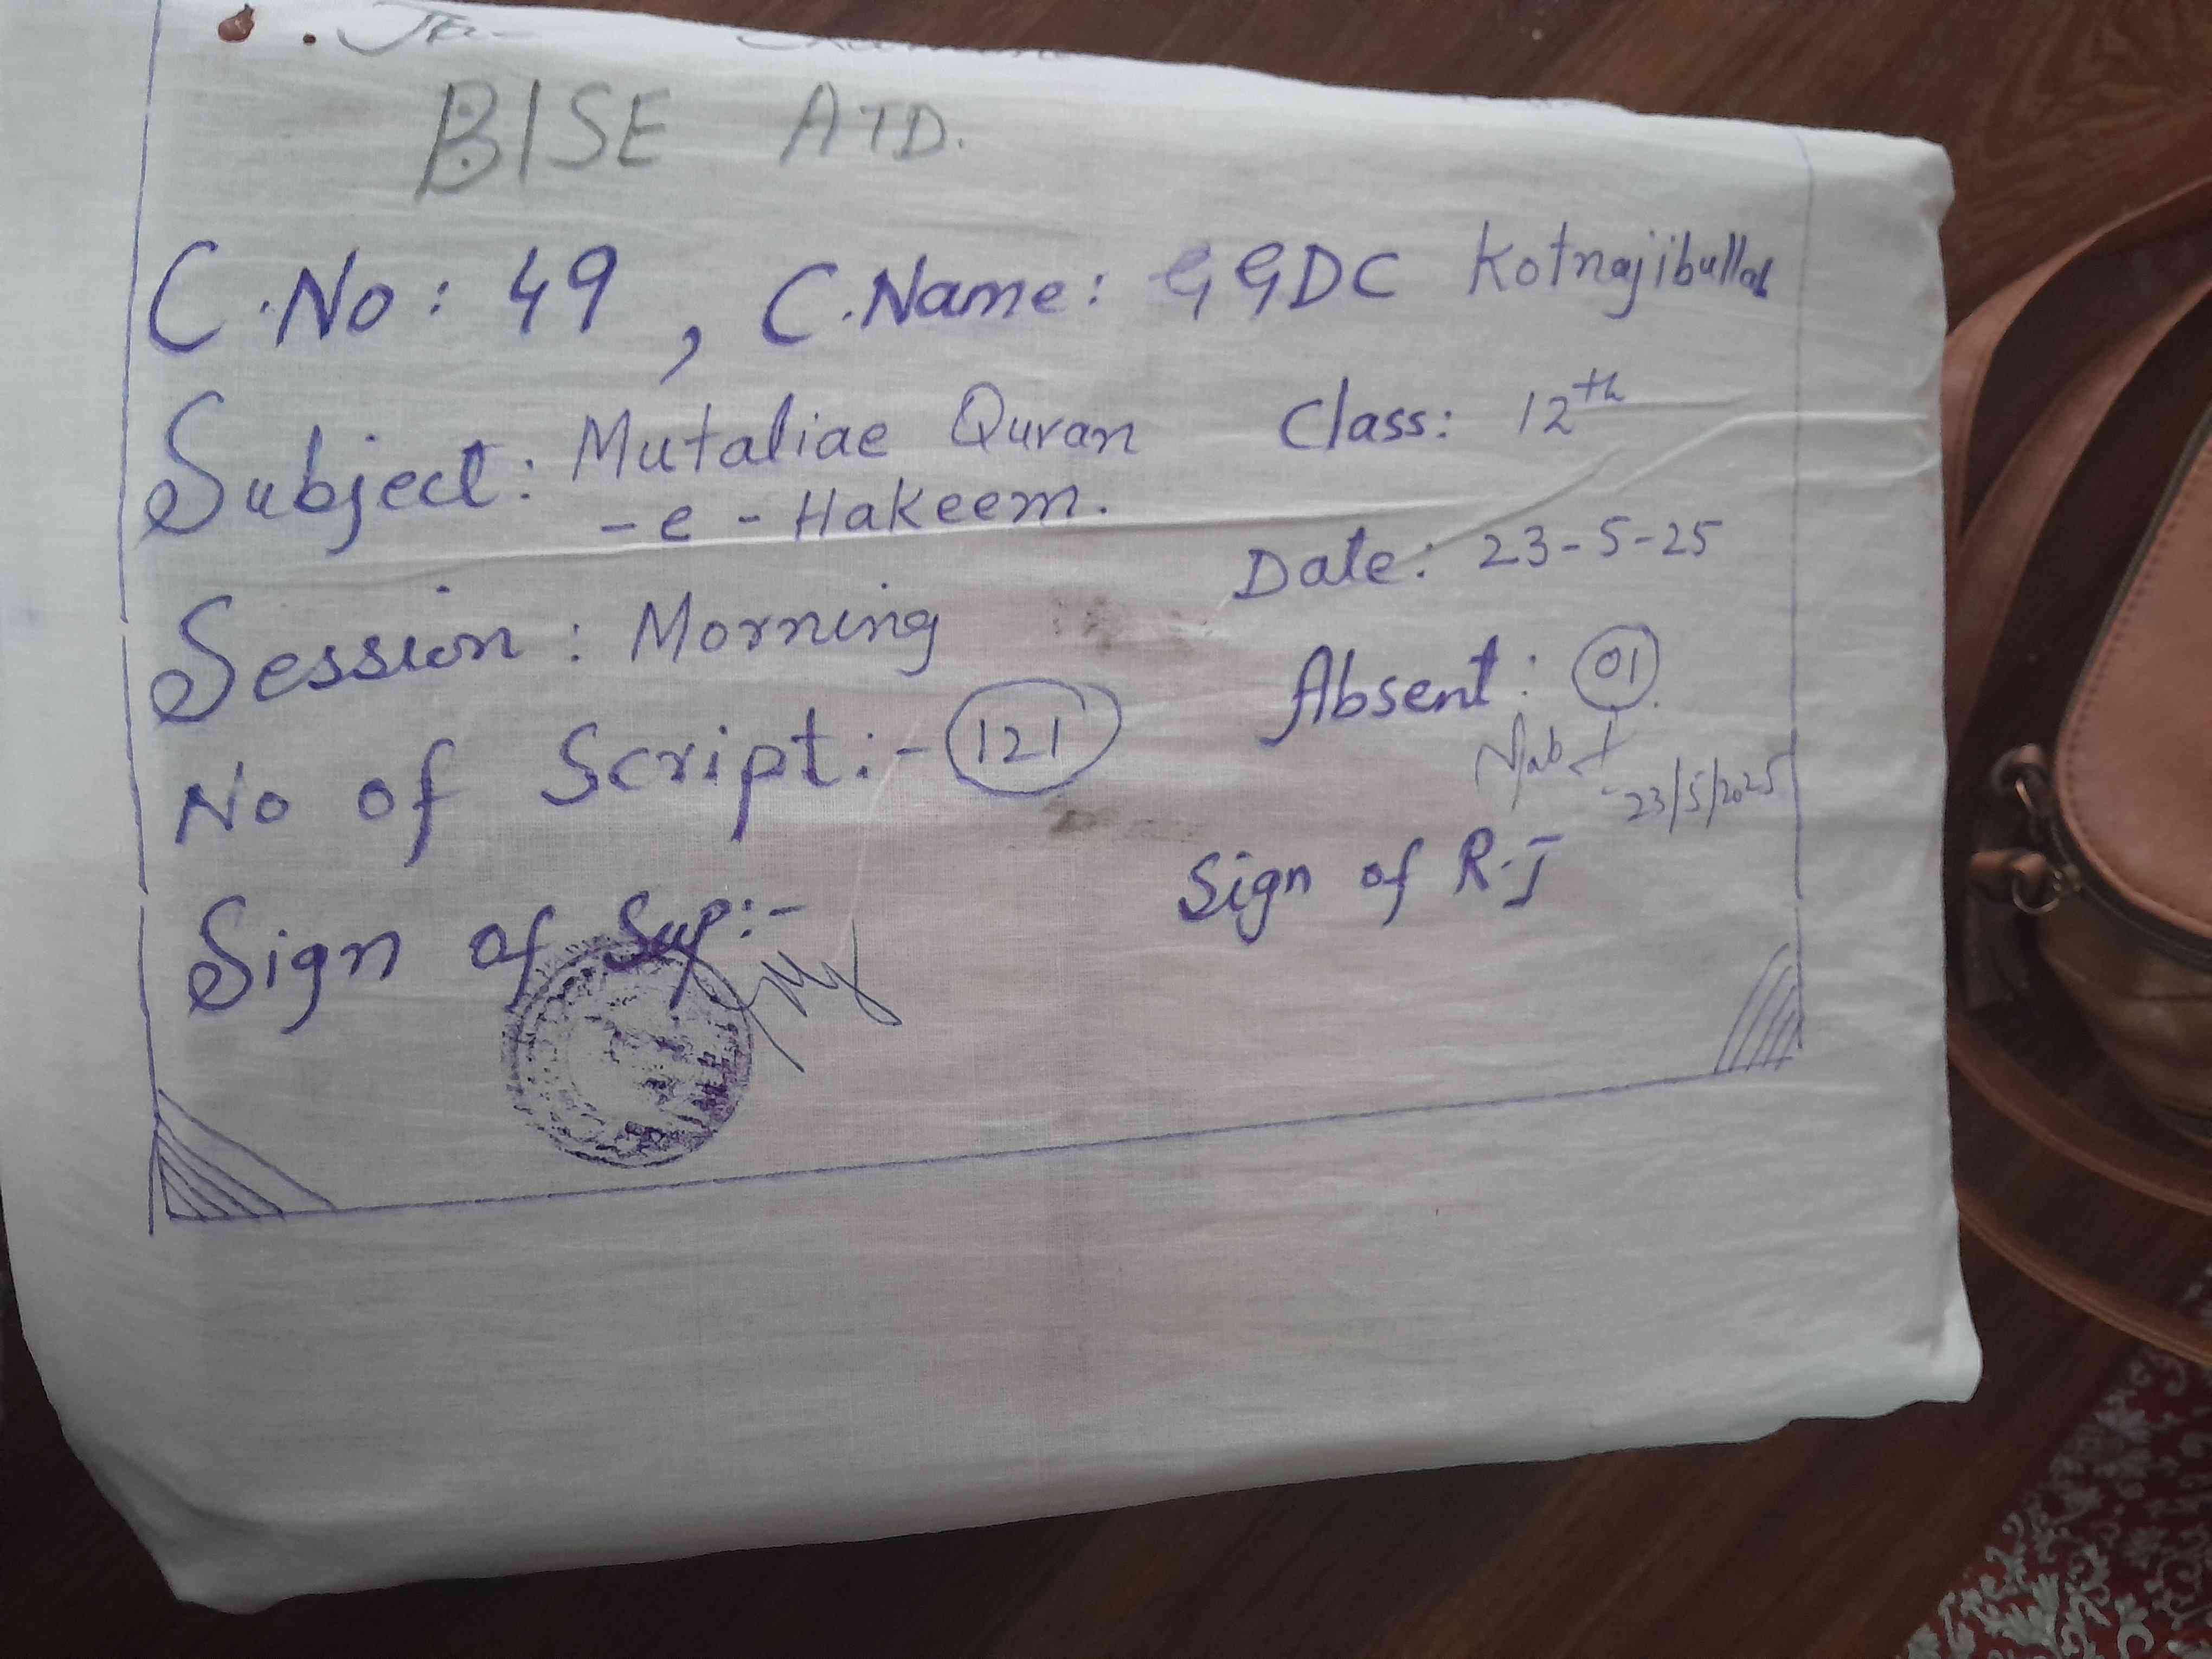 BISE ATD.
C.No: 49, C.Name: GGDC Kotnajibullah
Subject: Mutaliae Quran Class: 12th
-e-Hakeem.
Date: 23-5-25
Session: Morning
Absent: 01
No of Script:- 121
23/5/2025
Sign of R.I
Sign of Sup:-